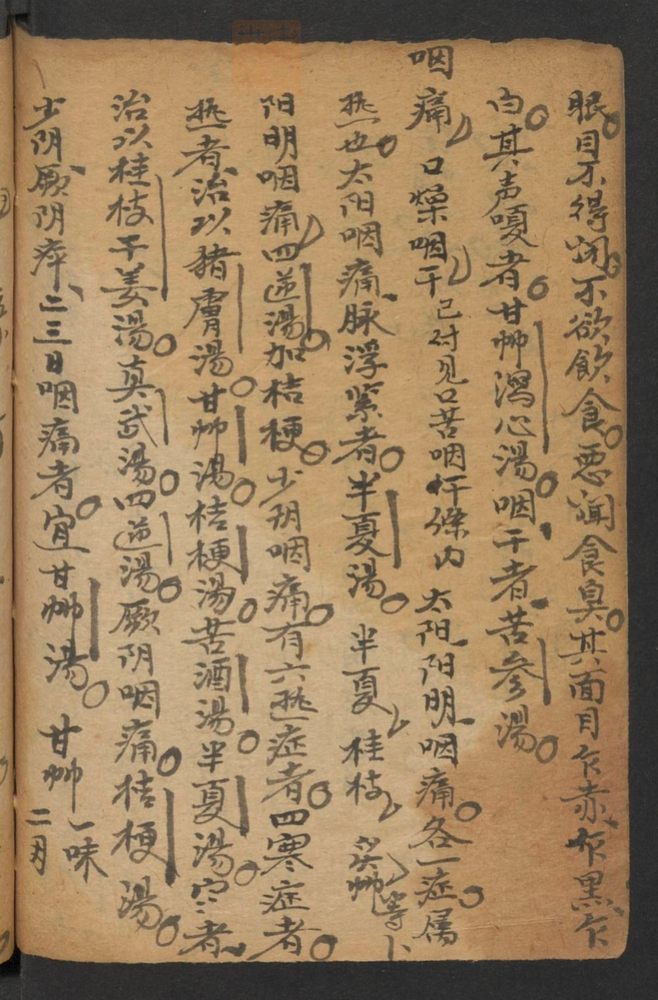 眼目不得闭不欲飲食恶闻食臭其面目乍赤乍黑乍
白其声嗄者甘艸瀉心湯咽干者苦参湯
咽痛 口燥咽干已付见口苦咽干條内 太阳阳明咽痛各一症属
热也太阳咽痛脉浮紧者半夏湯 半夏 桂枝 炙艸 等卜
阳明咽痛四逆湯加桔梗少阴咽痛有六热症者四寒症者
热者治以猪膚湯甘艸湯桔梗湯苦酒湯半夏湯寒者
治以桂枝干姜湯真武湯四逆湯厥阴咽痛桔梗湯
少阴厥阴瘁二三日咽痛者宜甘艸湯 甘艸一味 二月